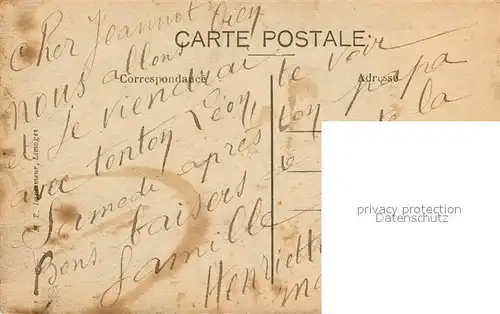 CARTE POSTALE
Correspondance
Adresse
Cher Jeannot
nous allons
et je viendrai te voir
avec tonton Léon, ton papa
Samedi après le de la
Bons baisers
famille
Henriette
privacy protection
Datenschutz